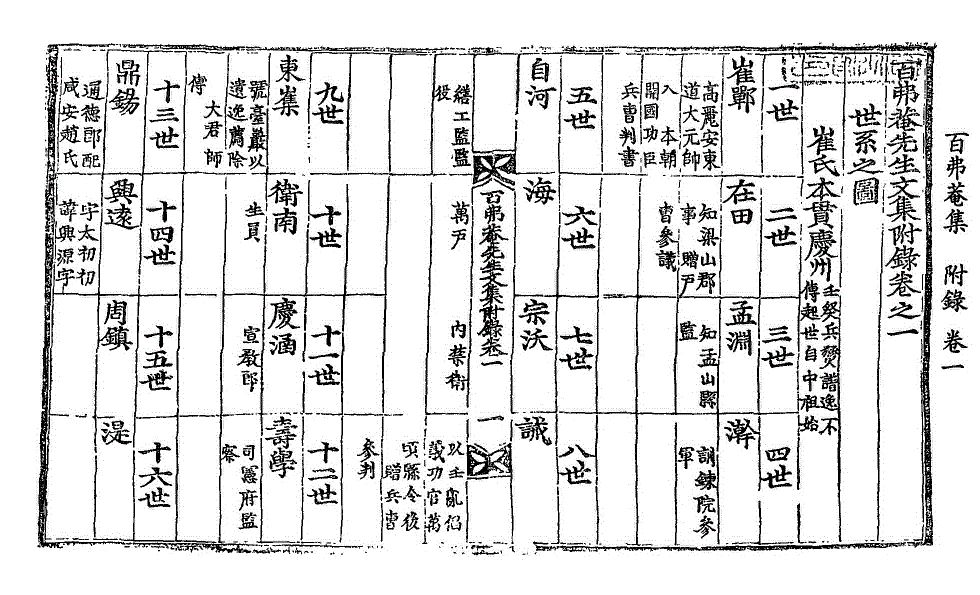 百弗菴集 附錄 卷一
百弗菴先生文集附錄卷之一
世系之圖
崔氏本貫慶州
壬癸兵燹譜逸不
傳起世自中祖始
一世
崔鄲
高麗安東
道大元帥
入 本朝
開國功臣
兵曹判書
二世
在田
知梁山郡
事 贈戶
曹參議
三世
孟淵
知孟山縣
監
四世
澣
訓鍊院參
軍
五世
自河
繕工監監
役
六世
海
萬戶
七世
宗沃
內禁衛
八世
誡
以壬亂倡
義功官萬
頃縣令後
贈兵曹
參判
百弗菴先生文集附錄卷一 一
九世
東㠍
號臺巖以
遺逸薦除
大君師
傅
十世
衛南
生員
十一世
慶涵
宣敎郎
十二世
壽學
司憲府監
察
十三世
鼎錫
通德郎配
咸安趙氏
十四世
興遠
字太初初
諱興源字
十五世
周鎭
十六世
湜